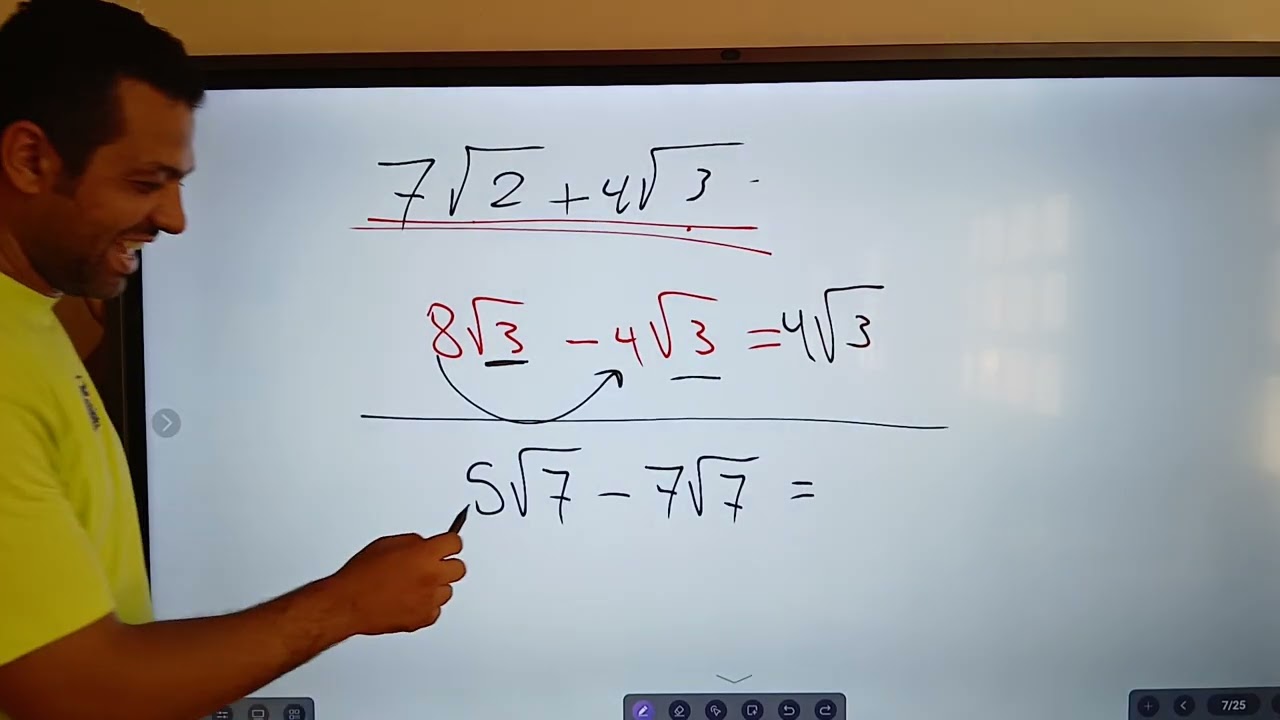 7√2 + 4√3
8√3 - 4√3 = 4√3
5√7 - 7√7 =
7/25